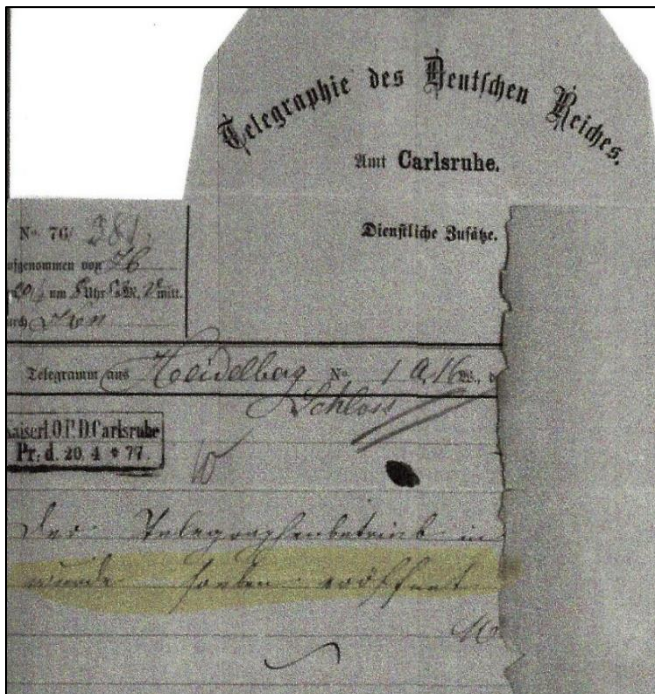 Telegraphie des Deutschen Reiches.
Amt Carlsruhe.
Dienstliche Zusätze.
No. 76/ 381.
ufgenommen von
20/4 um 8 Uhr mitt.
urch
Telegramm aus Heidelberg No. 1 16 W.,
Schloss
Kaiserl. O.P.D. Carlsruhe
Pr: d. 20. 4 * 77.
Der Telegraphenbetrieb in
wurde soeben eröffnet